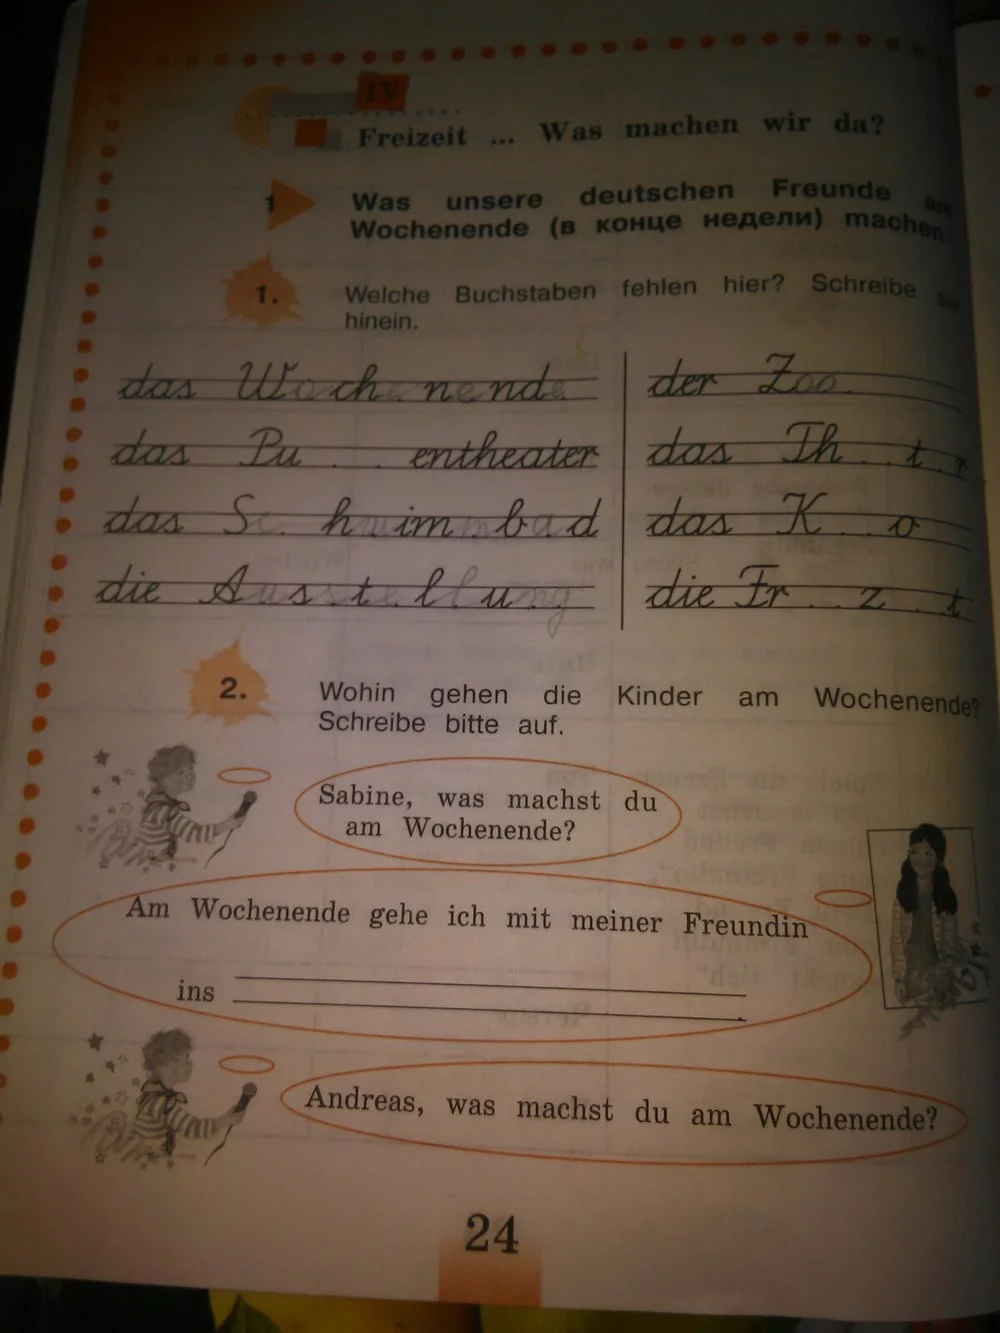 IV
Freizeit ... Was machen wir da?
1 Was unsere deutschen Freunde am
Wochenende (в конце недели) machen
1. Welche Buchstaben fehlen hier? Schreibe sie
hinein.
das Wochenende
das Pu . . entheater
das Schwimmbad
die Ausstellung
der Zoo
das Th . . t . r
das K . . o
die Fr . . z . . t
2. Wohin gehen die Kinder am Wochenende?
Schreibe bitte auf.
Sabine, was machst du
am Wochenende?
Am Wochenende gehe ich mit meiner Freundin
ins
Andreas, was machst du am Wochenende?
24